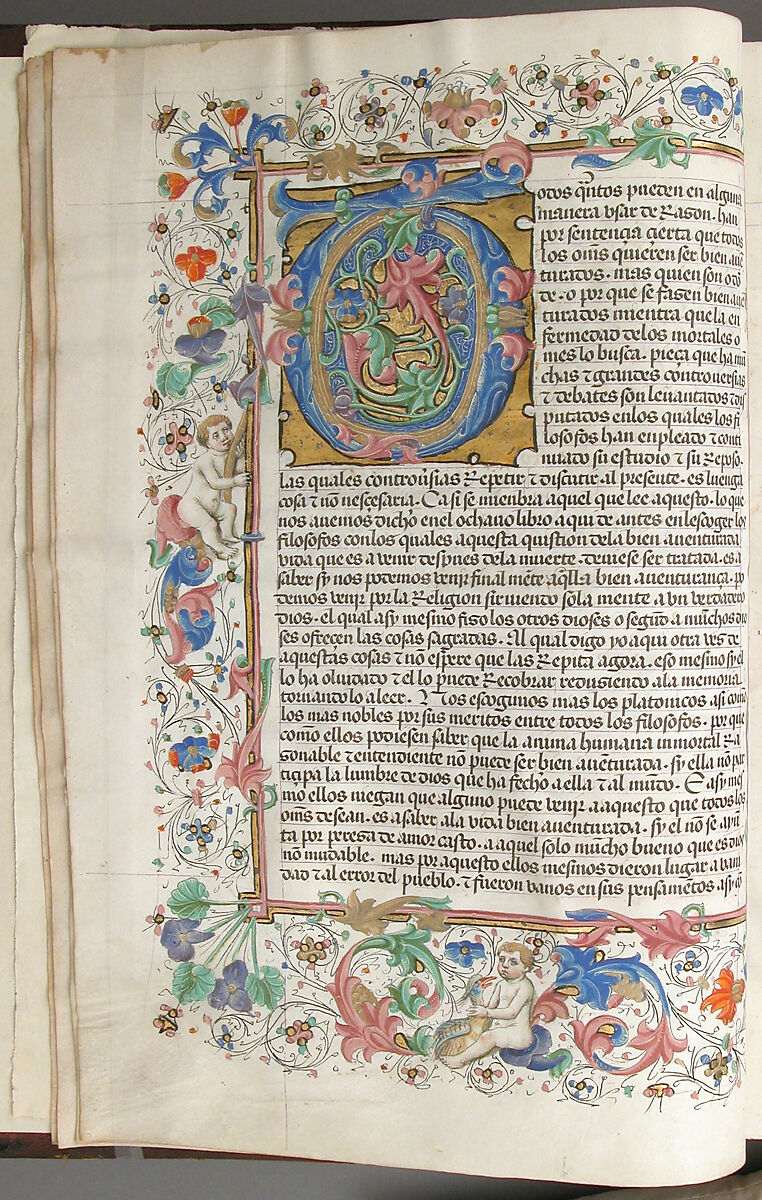 Todos q̄ntos pueden en alguna
manera vsar de Rason. han
por sentencia cierta que todos
los om̄s quieren ser bien auē
turados. mas quien son o dō
de. o por que se fasen bien auē
turados mientra que la en
fermedad delos mortales o
mes lo busca. pieça que ha mu
chas ⁊ grandes cōtrouersias
⁊ debates son leuantados ⁊ dis
putados enlos quales los fi
losofos han enpleado ⁊ conti
nuado su estudio ⁊ su Reposo.
las quales controūsias Repetir ⁊ discutir al presente. es luenga
cosa ⁊ nō nesçesaria. Ca si se mienbra aquel que lee aquesto. lo que
nos auemos dicho enel ochauo libro aqui de antes en lescoger los
filosofos con los quales aquesta quistion dela bien auenturada
vida que es a venir despues dela muerte. deuiese ser tratada. es a
saber sy nos podemos venir final mēte aq̄lla bien auenturança. po
demos venir por la Religion siruiendo sola mente a vn verdadero
dios. el qual asy mesmo fiso los otros dioses o segūd a muchos dio
ses ofrecen las cosas sagradas. Al qual digo yo aqui otra ves de
aquestas cosas ⁊ nō espere que las Repita agora. eso mesmo sy el
lo ha oluidado ⁊ el lo puede Recobrar redusiendo ala memoria
tornando lo a leer. Nos escogimos mas los platonicos asi como
los mas nobles por sus meritos entre todos los filosofos. por que
como ellos podiesen saber que la anima humana inmortal Ra
gonable ⁊ entendiente nō puede ser bien auēturada. sy ella nō par
tiçipa la lumbre de dios que ha fecho a ella ⁊ al mūdo. E asy mes
mo ellos niegan que alguno puede venir a aquesto que todos los
om̄s desean. es a saber ala vida bien auenturada. sy el nō se ayū
ta por peresa de amor casto. a aquel solo mūcho bueno que es dios
nō mudable. mas por aquesto ellos mesmos dieron lugar a vani
dad ⁊ al error del pueblo. ⁊ fueron vanos en sus pensamētos asy cō